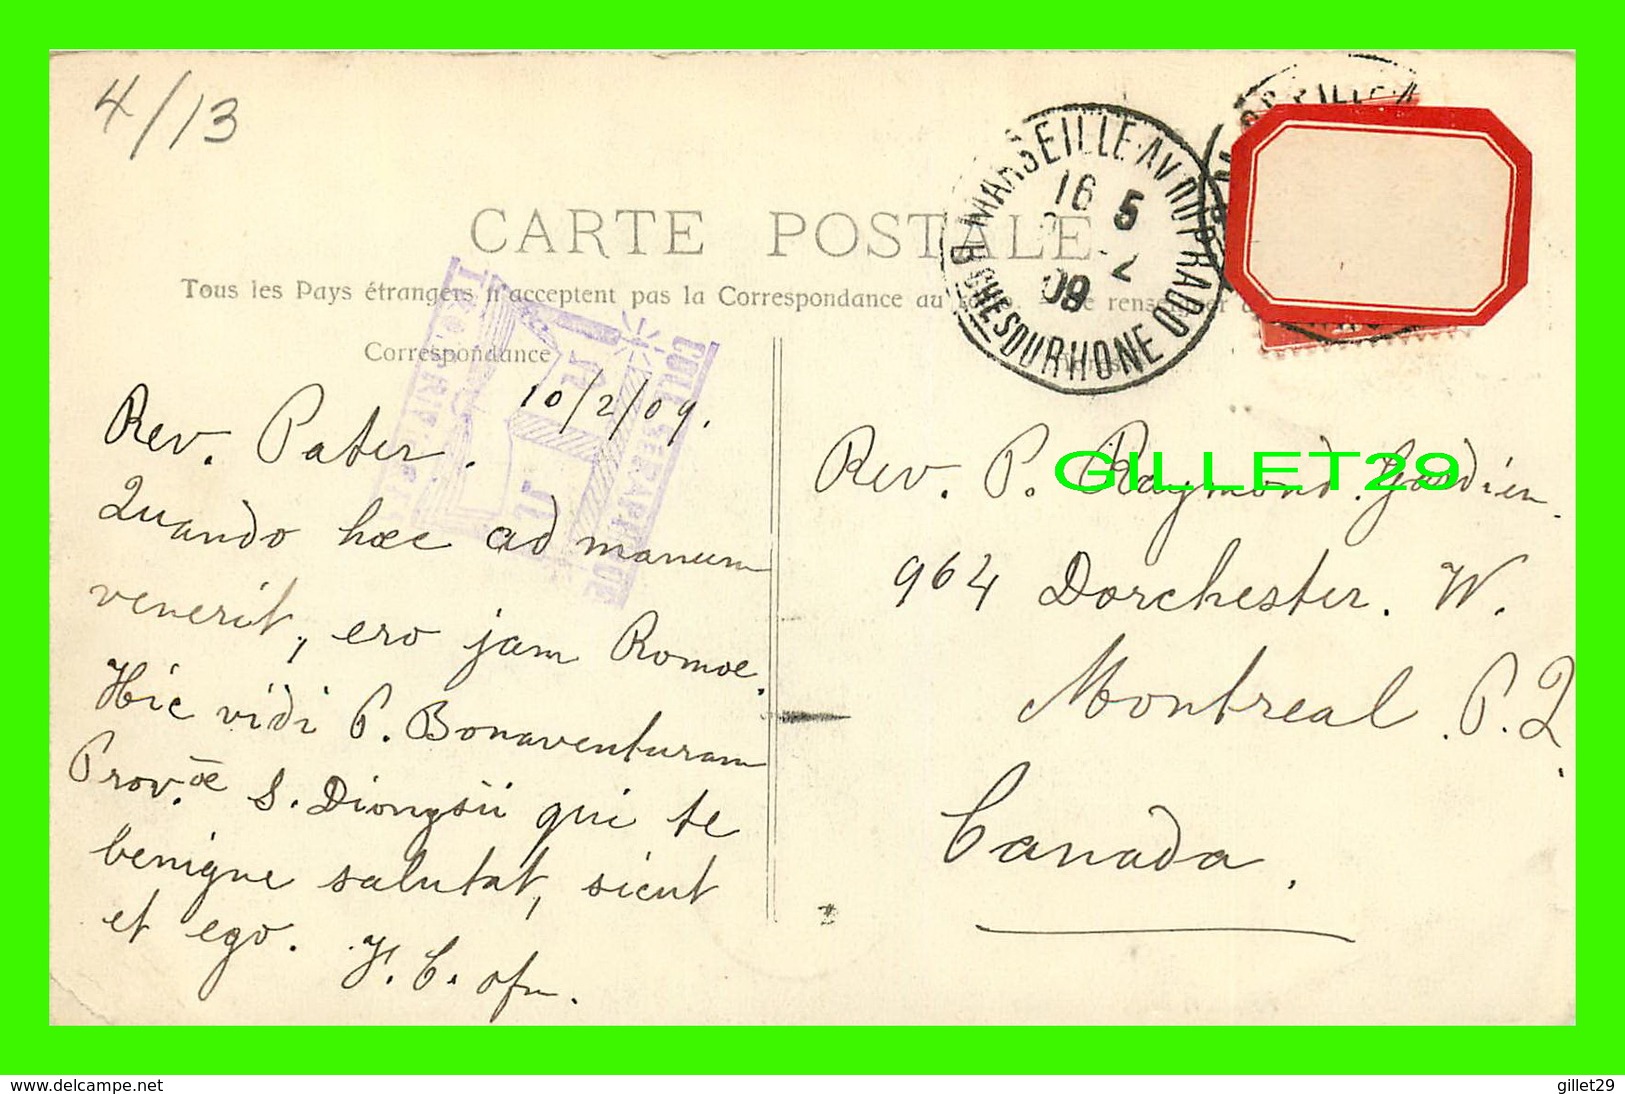 4/13
MARSEILLE-AV. DU PRADO
16 5
-2
09
BCHES DU RHONE
CARTE POSTALE
Tous les Pays étrangers n'acceptent pas la Correspondance au
Correspondance
COLL. SERAPHIQUE
10/2/09.
Rev. Pater.
Quando hæc ad manum
venerit, ero jam Romæ.
Hic vidi P. Bonaventuram
Prov.æ S. Dionysii qui te
benigne salutat, sicut
et ego. F. C. ofm.
Rev. P. Raymond. Gardien.
964 Dorchester. W.
Montreal. P. Q.
Canada.
GILLET29
www.delcampe.net
gillet29